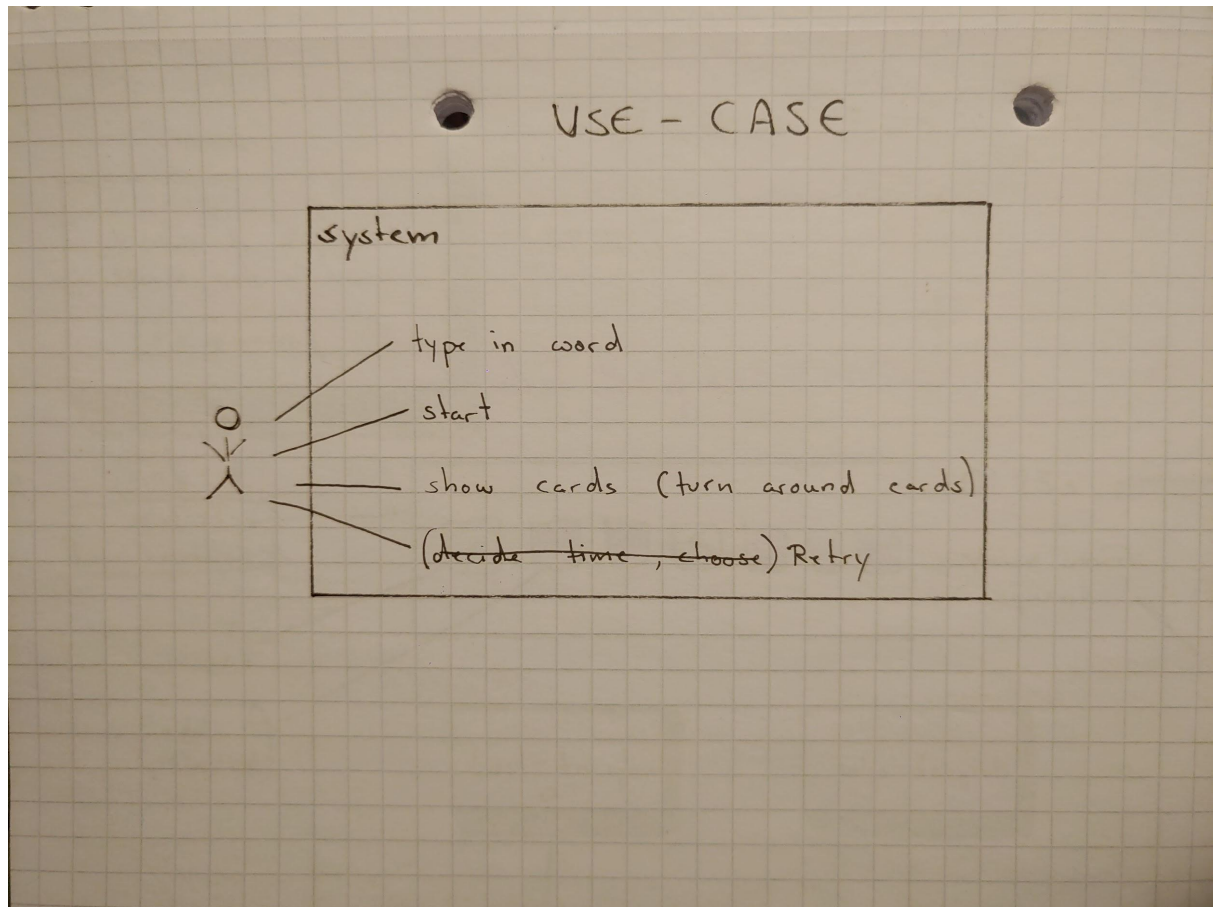 USE - CASE
system
type in word
start
show cards (turn around cards)
(decide time, choose) Retry